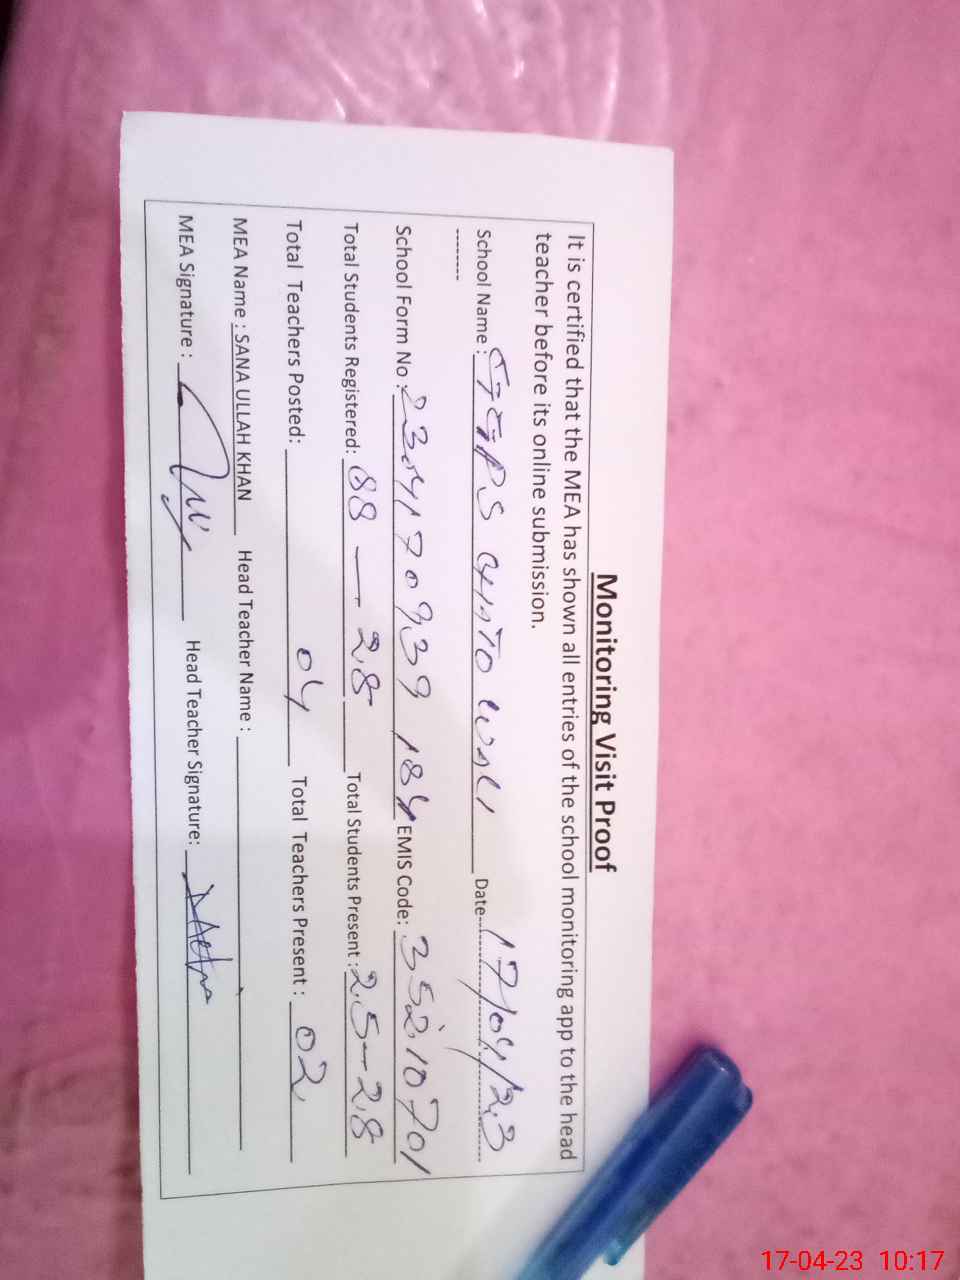 Monitoring Visit Proof
It is certified that the MEA has shown all entries of the school monitoring app to the head
teacher before its online submission.
School Name : GGPS Wali Date 17/04/23
School Form No : 2304170939 184 EMIS Code: 35210701
Total Students Registered: 88 — 28 Total Students Present : 25-28
Total Teachers Posted: 04 Total Teachers Present : 02
MEA Name : SANA ULLAH KHAN Head Teacher Name :
MEA Signature : Head Teacher Signature:
17-04-23 10:17